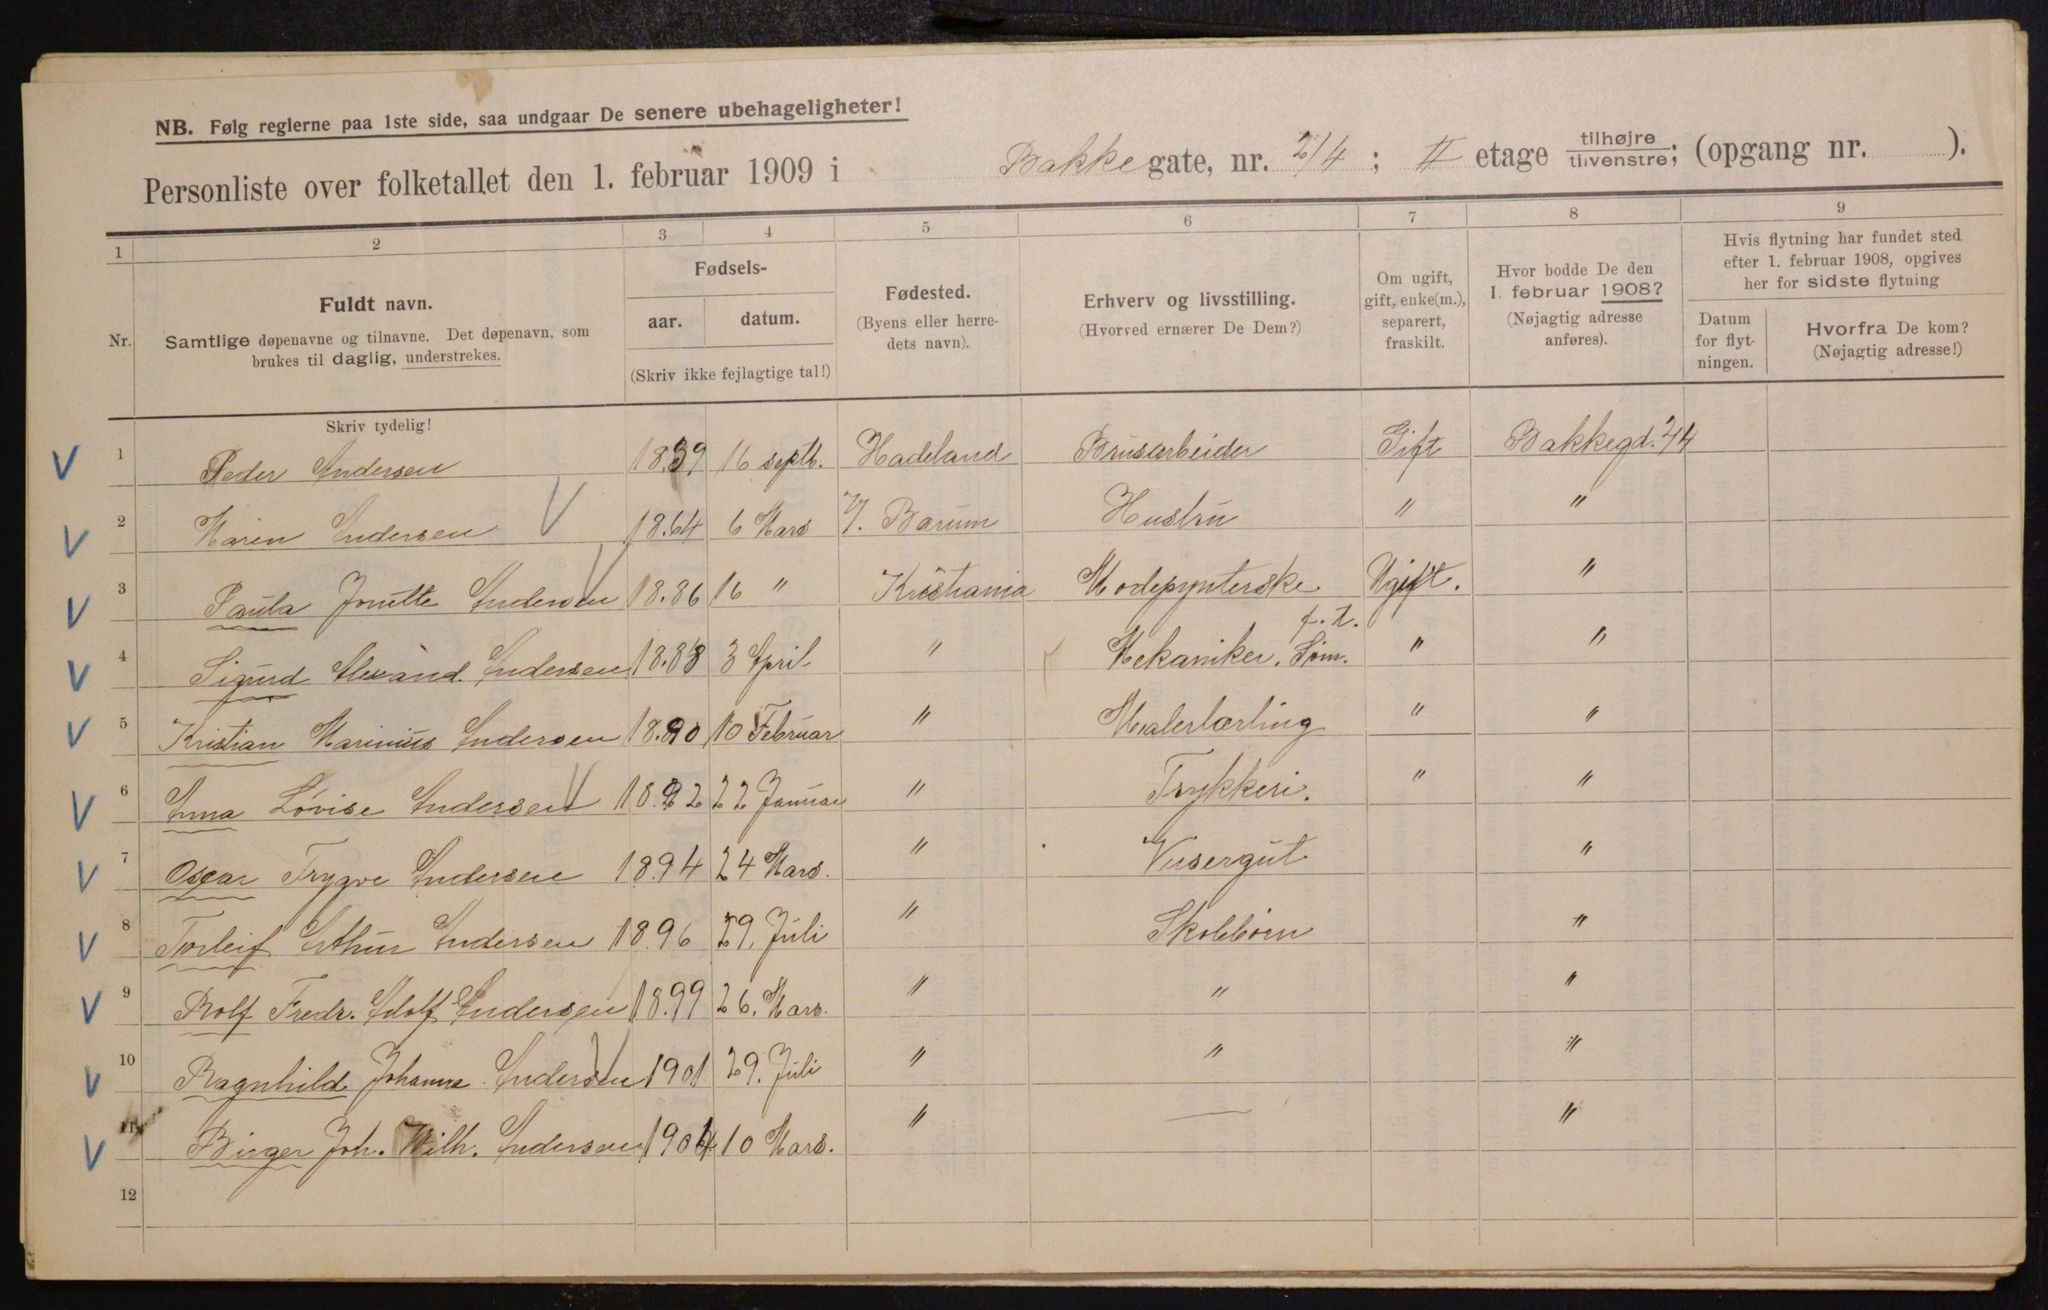 NB. Følg reglerne paa 1ste side, saa undgaar De senere ubehageligheter!
Personliste over folketallet den 1. februar 1909 i Bakke gate, nr. 24; II etage tilhøjre/tilvenstre; (opgang nr. ).
1 2 3 4 5 6 7 8 9
Nr.
Fuldt navn.
Samtlige døpenavne og tilnavne. Det døpenavn, som
brukes til daglig, understrekes.
Fødsels-
aar. datum.
(Skriv ikke fejlagtige tal!)
Fødested.
(Byens eller herre-
dets navn).
Erhverv og livsstilling.
(Hvorved ernærer De Dem?)
Om ugift,
gift, enke(m.),
separert,
fraskilt.
Hvor bodde De den
1. februar 1908?
(Nøjagtig adresse
anføres).
Hvis flytning har fundet sted
efter 1. februar 1908, opgives
her for sidste flytning
Datum
for flyt-
ningen.
Hvorfra De kom?
(Nøjagtig adresse!)
Skriv tydelig!
1 Peder Andersen 1839 16 septb. Hadeland Brusarbeider Gift Bakkegd. 24
2 Maren Andersen 1864 6 Mars V. Barum Hustru " "
3 Paula Andersen 1886 16 " Kristiania Modepynterske Ugift. "
4 Sigurd Alexand. Andersen 1888 3 April " Mekaniker. f. t. Søm. " "
5 Kristian Marinius Andersen 1890 10 Februar " Malerlærling " "
6 Anna Lovise Andersen 1892 22 Januar " Trykkeri. " "
7 Oscar Trygve Andersen 1894 24 Mars. " Visergut "
8 Torleif Arthur Andersen 1896 29. Juli " Skolebørn "
9 Rolf Fredr. Adolf Andersen 1899 26. Mars. " " "
10 Ragnhild Johanne Andersen 1901 29. Juli " " "
11 Birger Joh. Wilh. Andersen 1904 10 Mars. " — "
12